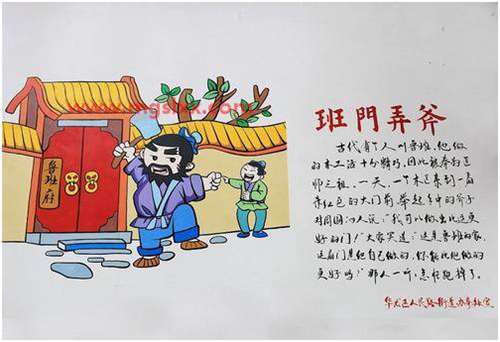 鲁班府
班門弄斧
古代有个人叫鲁班,他做
的木工活十分精巧,因此被奉为匠
师之祖。一天,一个木匠来到一扇
朱红色的大门前,举起手中的斧子
对周围的人说:"我可以做出比这更
好的门!"大家笑道:"这是鲁班的家,
这扇门是他自己做的,你能比他做的
更好吗?"那人一听,急忙跑掉了。
华龙区人民路街道办